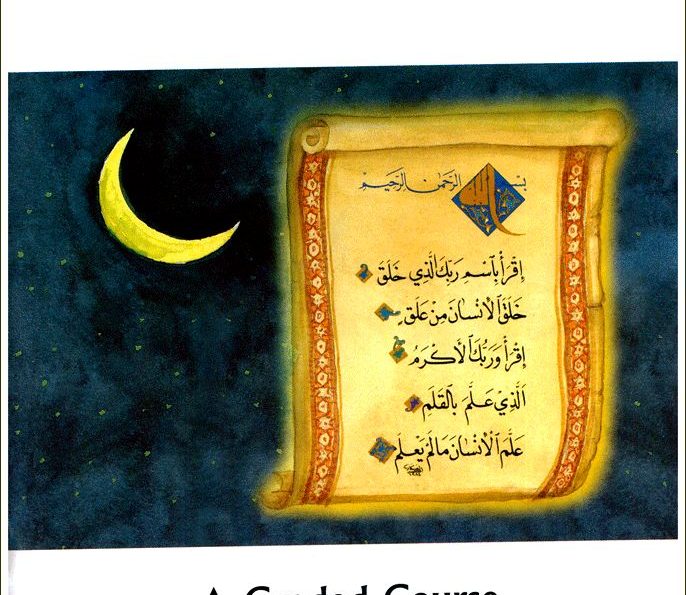 بسم الله الرحمن الرحيم
اِقْرَأْ بِاسْمِ رَبِّكَ الَّذِي خَلَقَ
خَلَقَ الْاِنْسَانَ مِنْ عَلَقٍ
اِقْرَأْ وَرَبُّكَ الْاَكْرَمُ
اَلَّذِي عَلَّمَ بِالْقَلَمِ
عَلَّمَ الْاِنْسَانَ مَا لَمْ يَعْلَمْ
A Graded Course